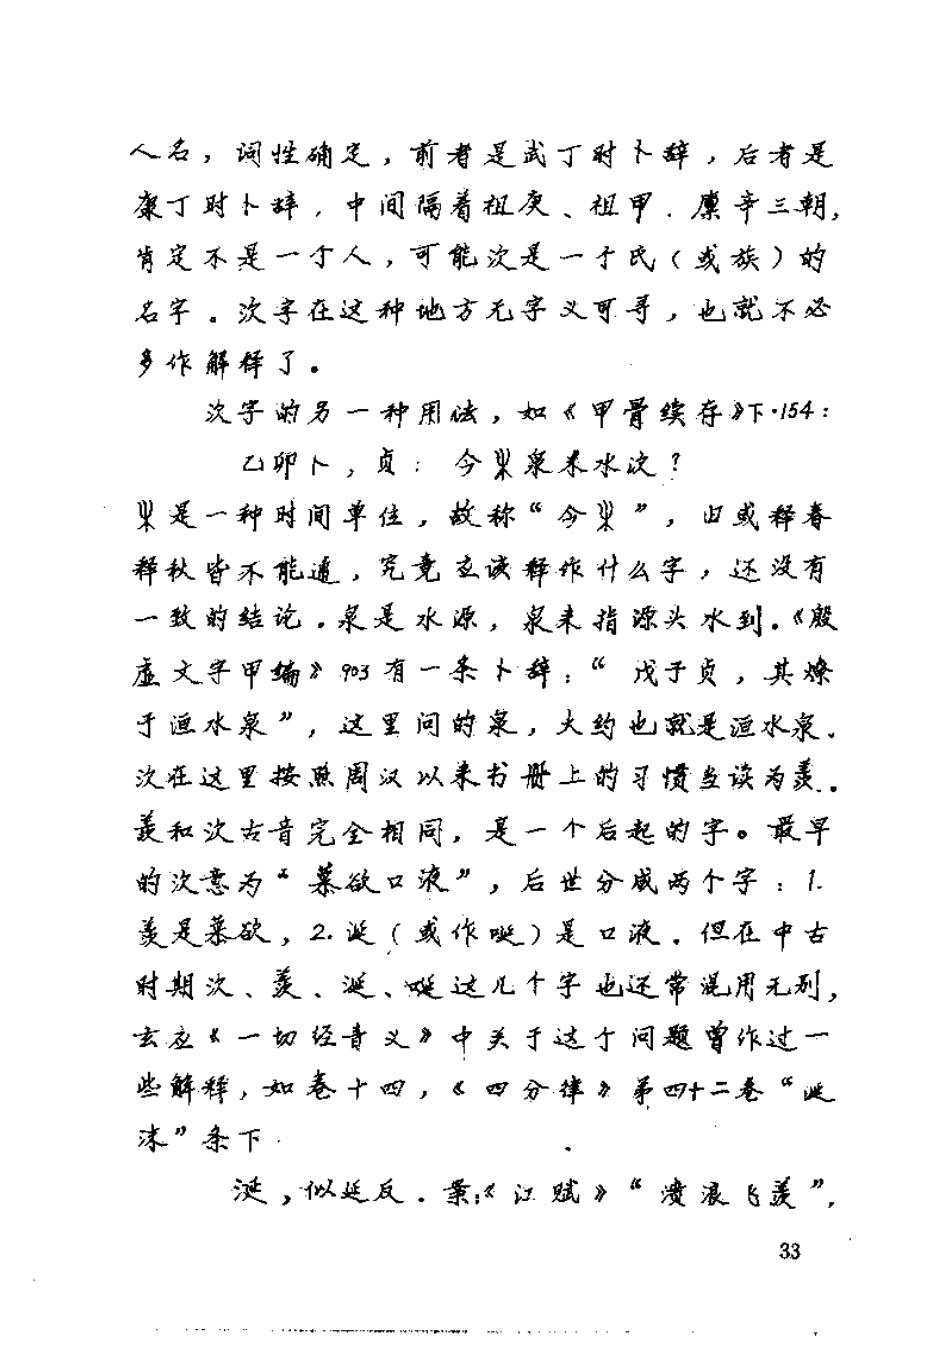 人名，词性确定，前者是武丁时卜辞，后者是
康丁时卜辞，中间隔着祖庚、祖甲．廪辛三朝，
肯定不是一个人，可能次是一个氏（或族）的
名字。次字在这种地方无字义可寻，也就不必
多作解释了。
次字的另一种用法，如《甲骨续存》下·154：
乙卯卜，贞：今泉来水次？
是一种时间单位，故称“今”，旧或释春
释秋皆不能通，究竟应该释作什么字，还没有
一致的结论．泉是水源，泉来指源头水到．《殷
虚文字甲编》903有一条卜辞：“戊子贞，其燎
于洹水泉”，这里问的泉，大约也就是洹水泉．
次在这里按照周汉以来书册上的习惯当读为羡．
羡和次古音完全相同，是一个后起的字。最早
的次意为“慕欲口液”，后世分成两个字：1.
羡是慕欲，2.涎（或作唌）是口液．但在中古
时期次、羡、涎、唌这几个字也还常混用无别，
玄应《一切经音义》中关于这个问题曾作过一
些解释，如卷十四，《四分律》第四十二卷“涎
沫”条下．
涎，似延反．案：《江赋》“濆浪飞羡”，
33